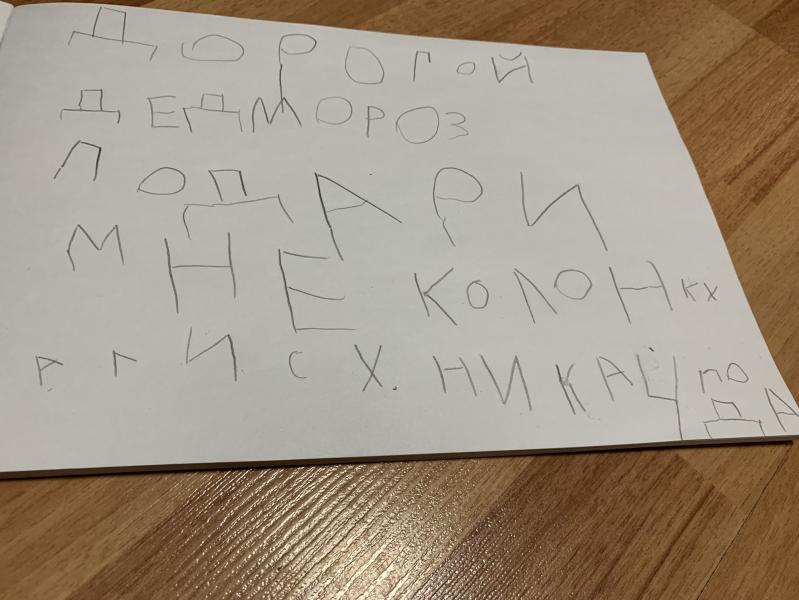 ДОРОГОЙ
ДЕДМОРОЗ
ПОДАРИ
МНЕ КОЛОНКХ
Р Г И С Х. НИКАЦ ПО
ДА